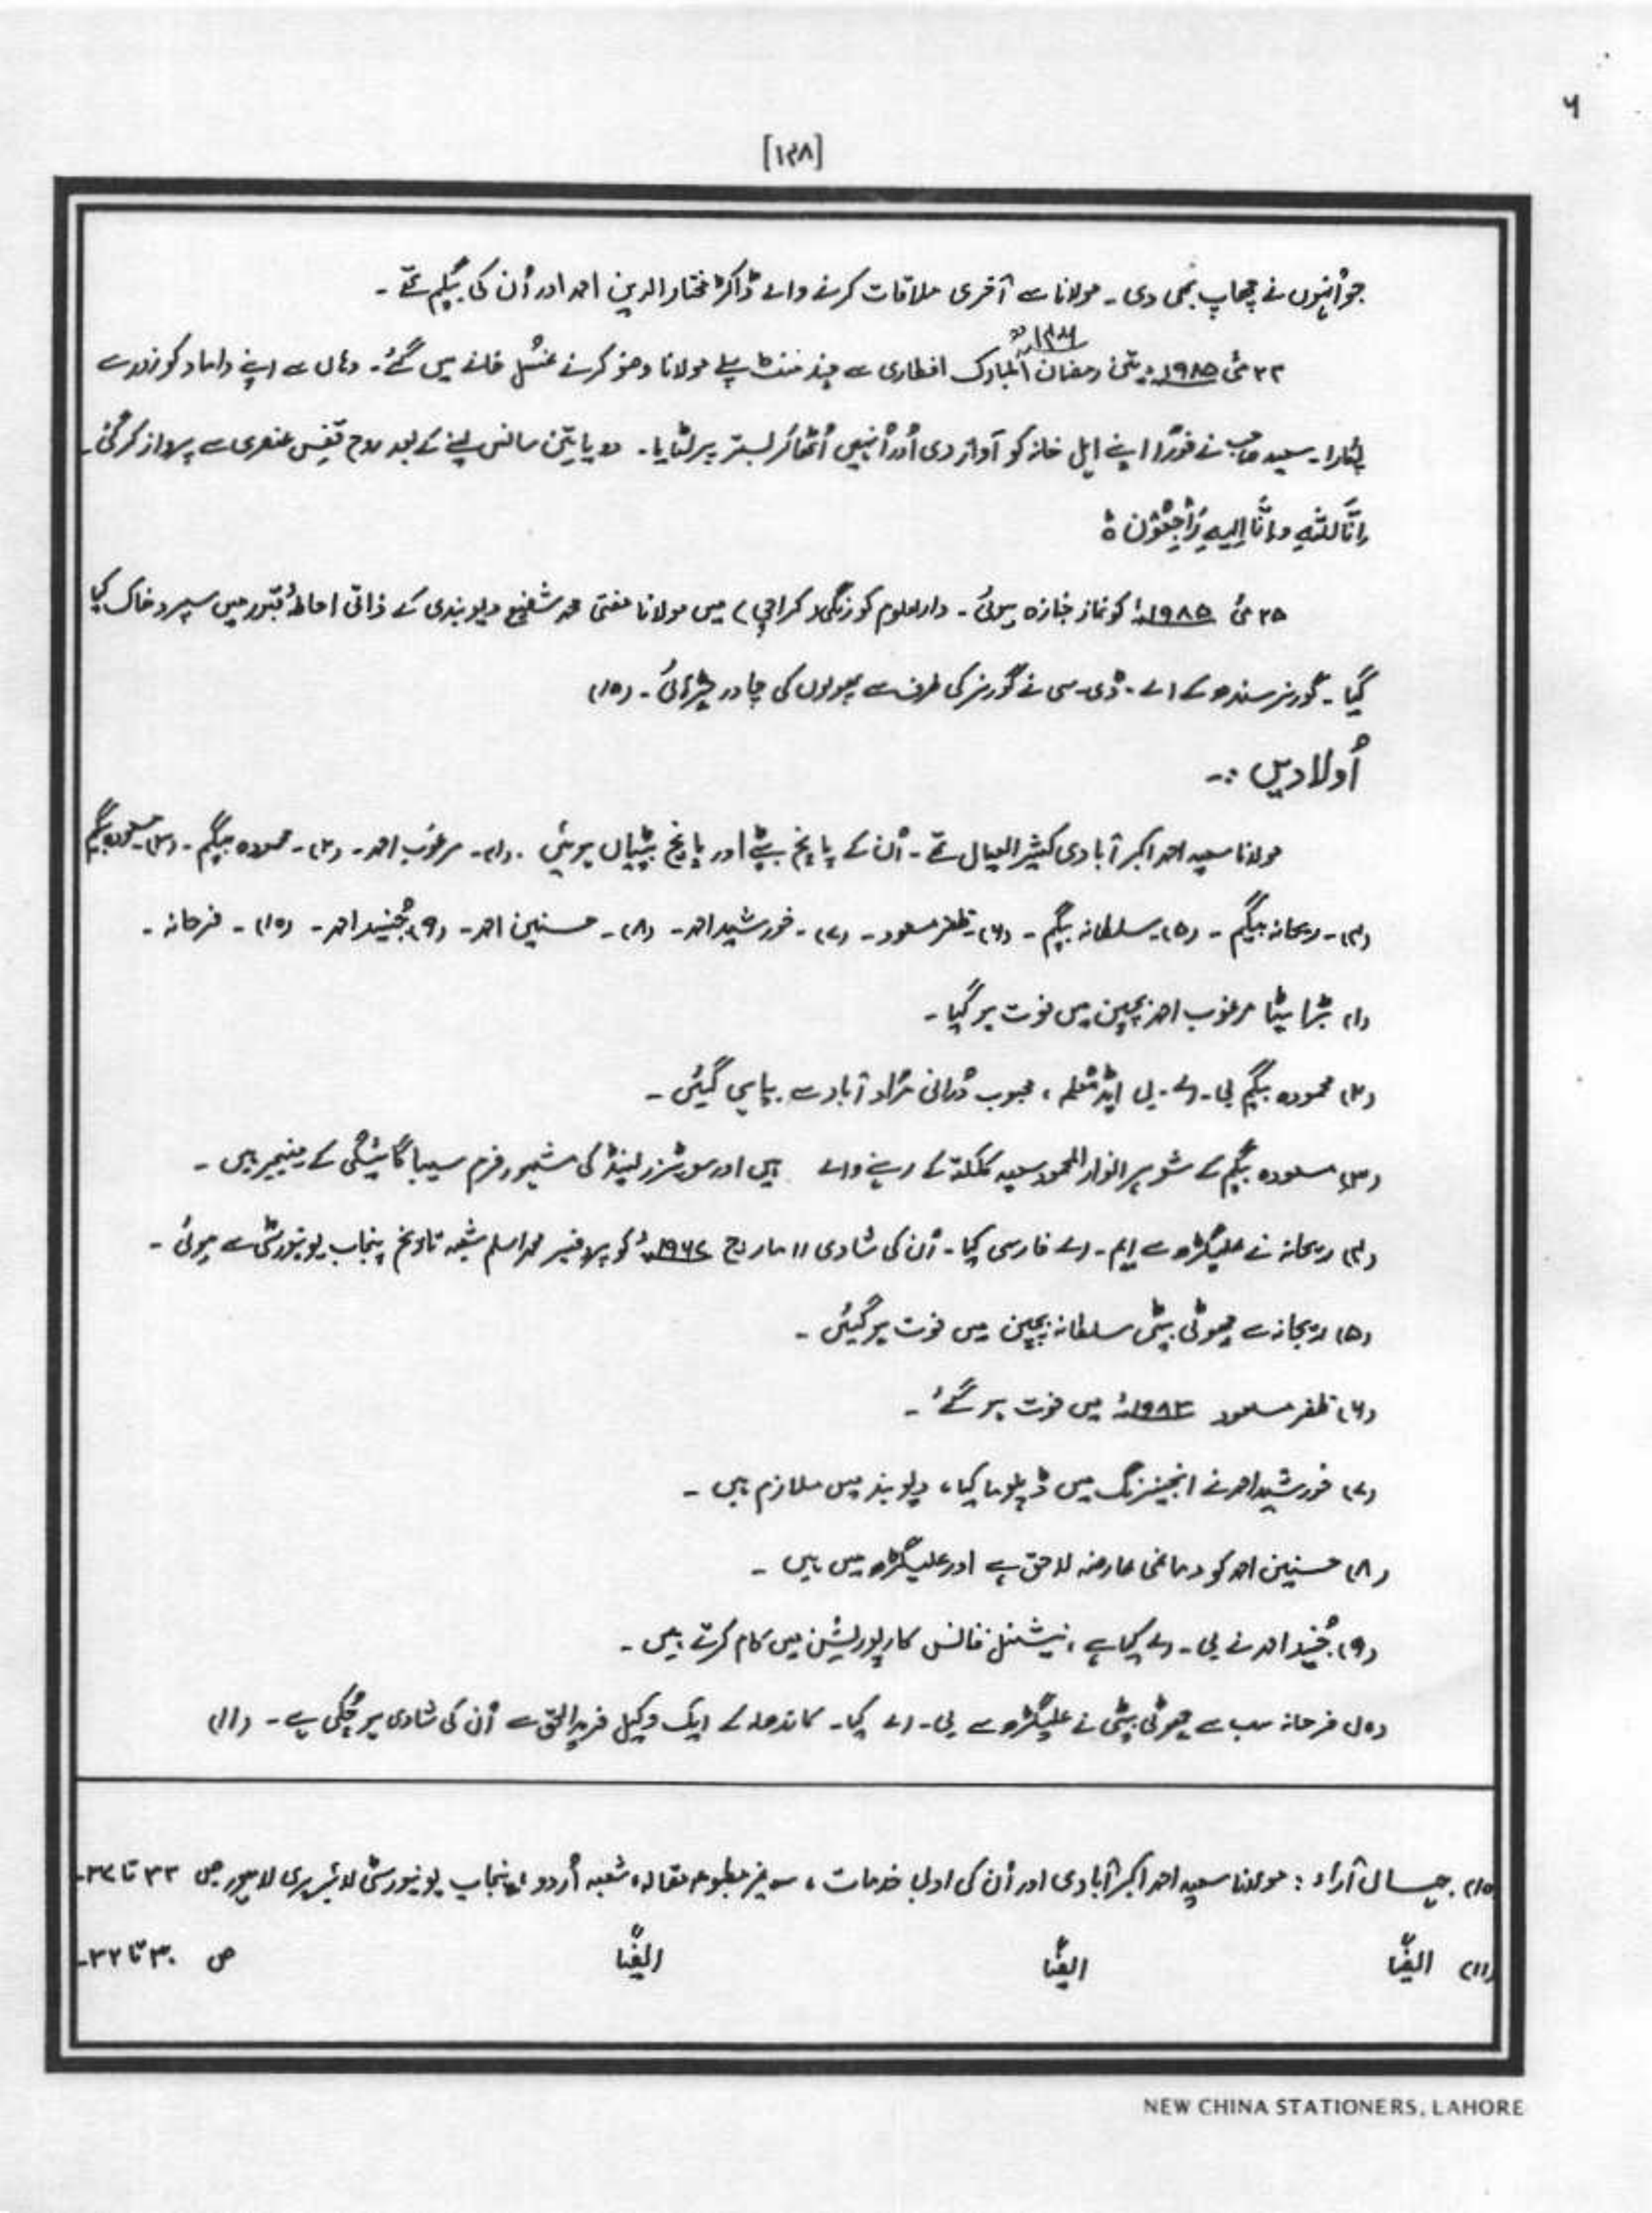 ۶
[۱۲۸]
جو اُنہوں نے چھاپ بھی دی۔ مولانا سے آخری ملاقات کرنے والے ڈاکٹر مختار الدین احمد اور اُن کی بیگم تھے۔
۲۳ مئی ۱۹۸۵ء تین رمضان المبارک افطاری سے چند منٹ پہلے مولانا وضو کرنے غسل خانے میں گئے۔ وہاں سے اپنے داماد کو زور سے
پکارا۔ سعید صاحب نے فوراً اپنے اہل خانہ کو آواز دی اور اُنہیں اُٹھا کر بستر پر لٹایا۔ دو یا تین سانس لینے کے بعد روح قفسِ عنصری سے پرواز کر گئی۔
اِنَّا لِلّٰهِ وَاِنَّا اِلَیهِ رَاجِعُوْن ہ
۲۵ مئی ۱۹۸۵ء کو نماز جنازہ ہوئی۔ دارالعلوم کورنگی (کراچی) میں مولانا مفتی محمد شفیع دیوبندی کے ذاتی احاطۂ قبور میں سپرد خاک کیا
گیا۔ گورنر سندھ کے اے۔ ڈی۔ سی نے گورنر کی طرف سے پھولوں کی چادر چڑھائی۔ (۱۰)
اُولادیں :۔
مولانا سعید احمد اکبر آبادی کثیر العیال تھے۔ اُن کے پانچ بیٹے اور پانچ بیٹیاں ہوئیں۔ (۱)۔ مرغوب احمد۔ (۲)۔ محمودہ بیگم۔ (۳)۔ مسعودہ بیگم
(۴)۔ ریحانہ بیگم۔ (۵)۔ سلطانہ بیگم۔ (۶)۔ ظفر مسعود۔ (۷)۔ خورشید احمد۔ (۸)۔ حسنین احمد۔ (۹) جُنید احمد۔ (۱۰)۔ فرحانہ۔
(۱) بڑا بیٹا مرغوب احمد بچپن میں فوت ہو گیا۔
(۲) محمودہ بیگم بی۔ اے۔ بی ایڈ معلم، محبوب دُرانی مُراد آباد سے بیاہی گئیں۔
(۳) مسعودہ بیگم کے شوہر انوار المحمود سعید کلکتہ کے رہنے والے ہیں اور سوئٹزرلینڈ کی مشہور فرم سیبا گائیگی کے مینیجر ہیں۔
(۴) ریحانہ نے علیگڑھ سے ایم۔ اے فارسی کیا۔ اُن کی شادی ۱۱ مارچ ۱۹۶۲ء کو پروفیسر محمد اسلم شعبہ تاریخ پنجاب یونیورسٹی سے ہوئی۔
(۵) ریحانہ سے چھوٹی بیٹی سلطانہ بچپن میں فوت ہو گئیں۔
(۶) ظفر مسعود ۱۹۸۳ء میں فوت ہو گئے۔
(۷) خورشید احمد نے انجینئرنگ میں ڈپلوما کیا، دیوبند میں ملازم ہیں۔
(۸) حسنین احمد کو دماغی عارضہ لاحق ہے اور علیگڑھ میں ہیں۔
(۹) جُنید احمد نے بی۔ اے کیا ہے، نیشنل فانس کارپوریشن میں کام کرتے ہیں۔
(۱۰) فرحانہ سب سے چھوٹی بیٹی نے علیگڑھ سے بی۔ اے کیا۔ کاندھلہ کے ایک وکیل فرید الحق سے اُن کی شادی ہو چُکی ہے۔ (۱۱)
(۱۰) جہاں آراء : مولانا سعید احمد اکبر آبادی اور اُن کی ادبی خدمات، غیر مطبوعہ مقالہ، شعبہ اُردو، پنجاب یونیورسٹی لائبریری لاہور ص ۳۳ تا ۳۷۔
(۱۱) ایضًا ایضًا ایضًا ص ۳۰ تا ۳۲۔
NEW CHINA STATIONERS, LAHORE